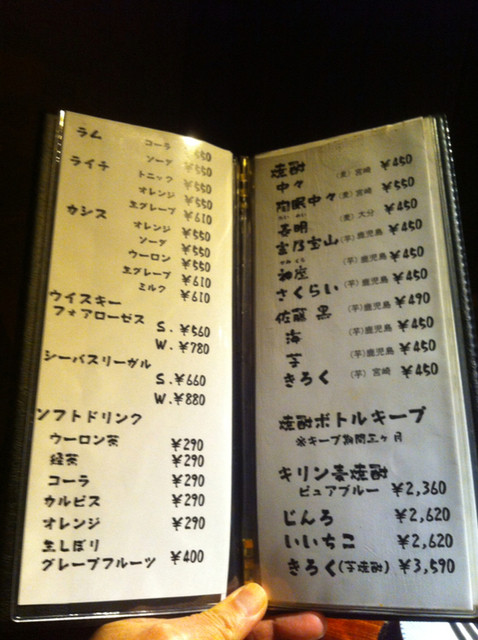 ラム コーラ ¥550
ライチ ソーダ ¥550
トニック ¥550
オレンジ ¥550
生グレープ ¥610
カシス オレンジ ¥550
ソーダ ¥550
ウーロン ¥550
生グレープ ¥610
ミルク ¥610
ウイスキー
フォアローゼス
S. ¥560
W. ¥780
シーバスリーガル
S. ¥660
W. ¥880
ソフトドリンク
ウーロン茶 ¥290
緑茶 ¥290
コーラ ¥290
カルピス ¥290
オレンジ ¥290
生しぼり
グレープフルーツ ¥400
焼酎
中々 (麦) 宮崎 ¥450
陶眠中々 (麦) 宮崎 ¥550
たい めい
泰明 (麦) 大分 ¥450
富乃宝山 (芋)鹿児島 ¥450
神座 (芋)鹿児島 ¥450
さくらい (芋)鹿児島 ¥450
佐藤 黒 (芋)鹿児島 ¥490
海 (芋)鹿児島 ¥450
芋 (芋)鹿児島 ¥450
きろく (芋) 宮崎 ¥450
焼酎ボトルキープ
※キープ期間三ヶ月
キリン麦焼酎
ピュアブルー ¥2,360
じんろ ¥2,620
いいちこ ¥2,620
きろく(芋焼酎) ¥3,590